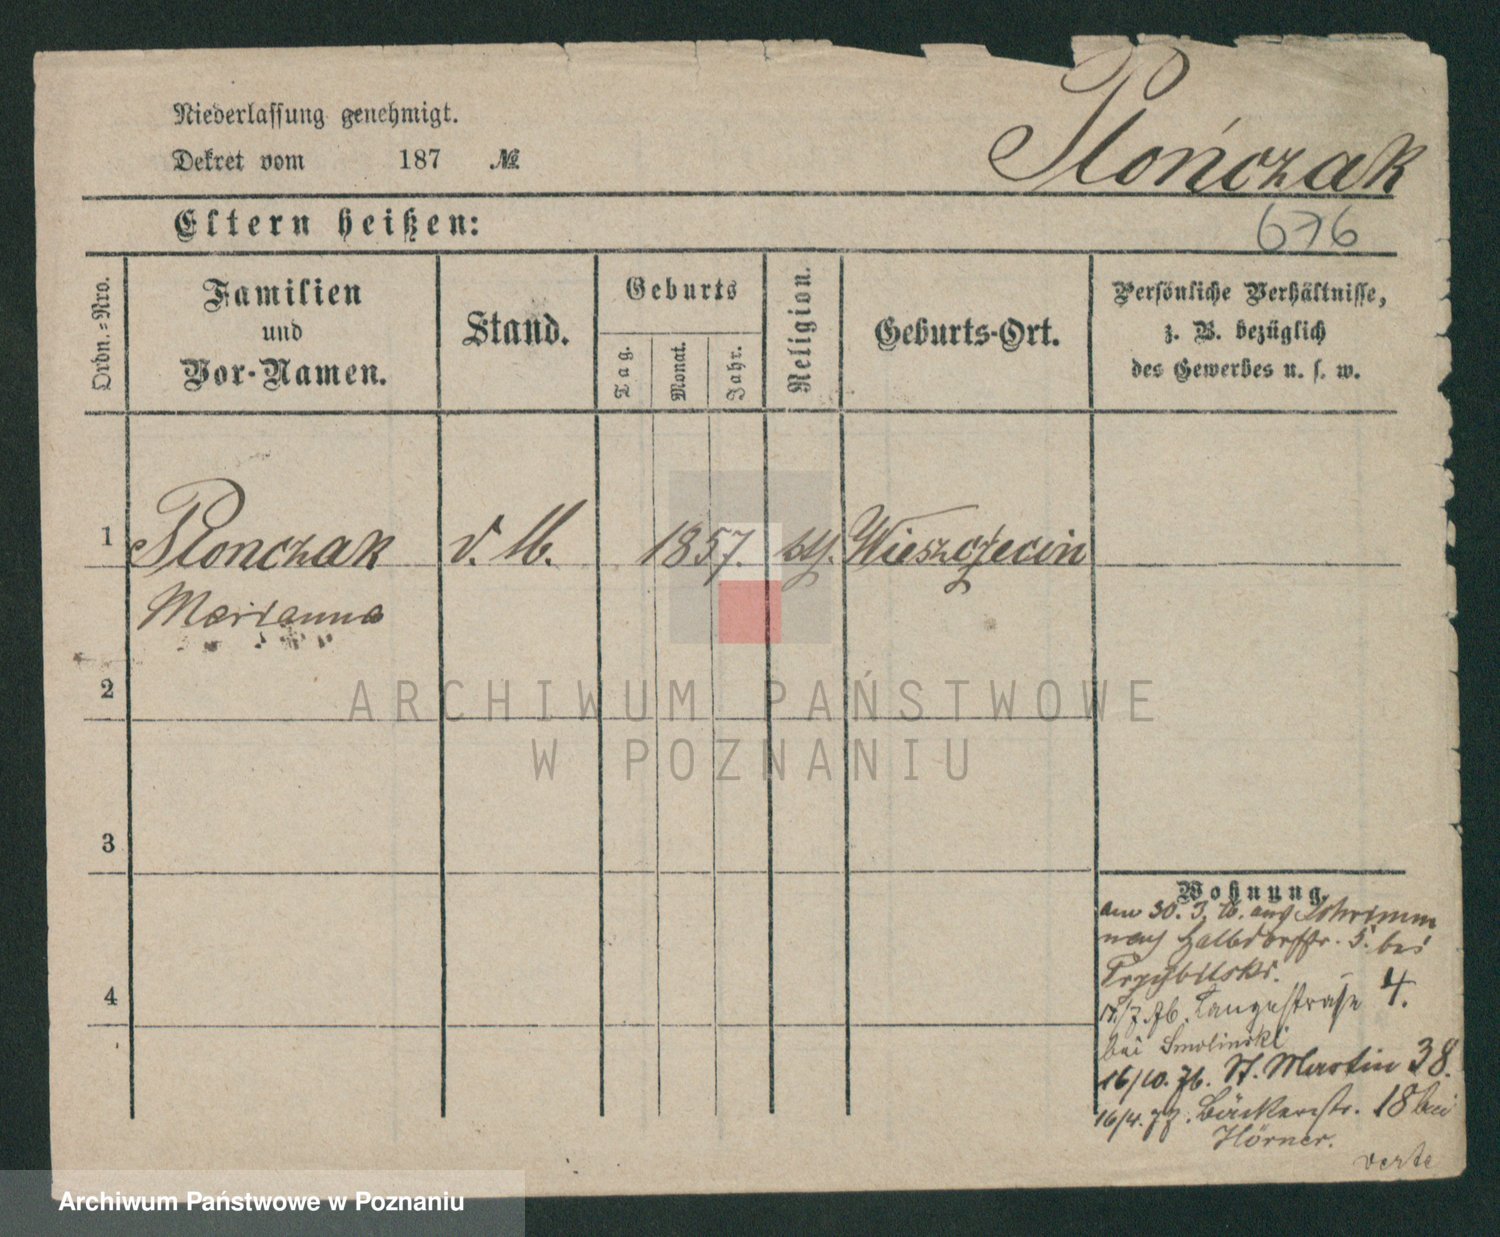 Niederlassung genehmigt.
Dekret vom 187 №
Płończak
676
Eltern heißen:
Ordn.-Nro.
Familien
und
Vor-Namen.
Stand.
Geburts
Tag.
Monat.
Jahr.
Religion.
Geburts-Ort.
Persönliche Verhältnisse,
z. B. bezüglich
des Gewerbes u. s. w.
1 Plonczak d. M. 1857. kth. Wieszczecin
Marianna
2
3
4
Wohnung.
am 30. 3. 76. aus Schrimm
nach Halbdorfstr. 5. bei
Przybilski.
17/7. 76. Langestraße 4.
bei Smolinski
16/10. 76. St. Martin 38.
16/4. 77. Bäckerstr. 18 bei
Hörner.
verte
ARCHIWUM PAŃSTWOWE
W POZNANIU
Archiwum Państwowe w Poznaniu